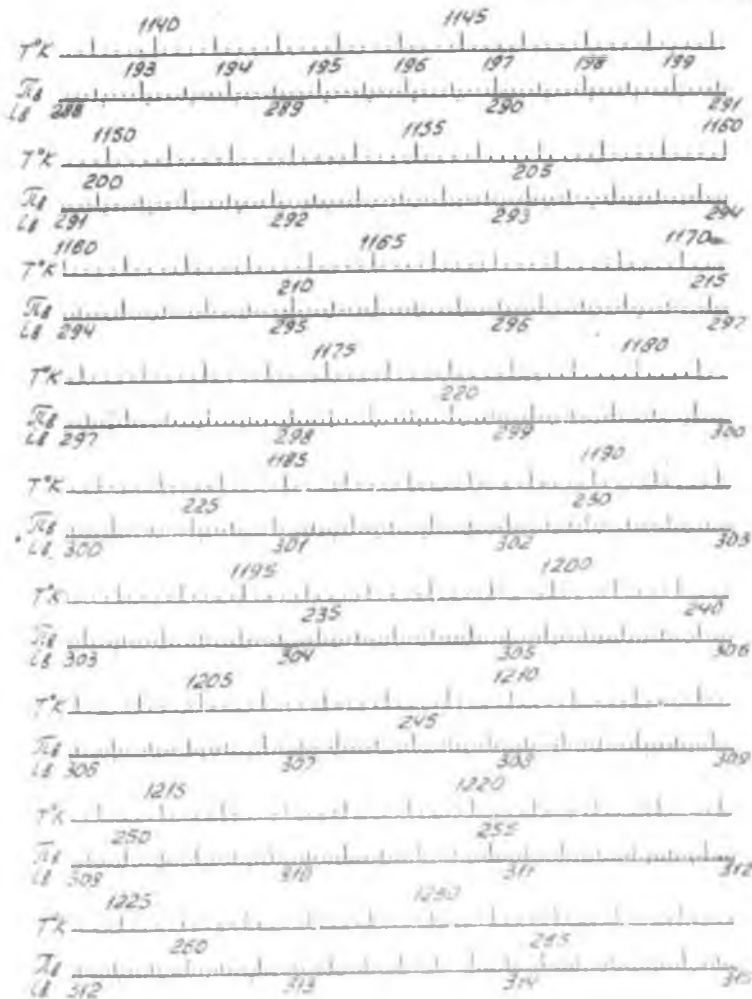 1140 1145
T°K
193 194 195 196 197 198 199
πв
iв 288 289 290 291
1150 1155 1160
T°K
200 205
πв
iв 291 292 293 294
1160 1165 1170
T°K
210 215
πв
iв 294 295 296 297
1175 1180
T°K
220
πв
iв 297 298 299 300
1185 1190
T°K
225 230
πв
iв 300 301 302 303
1195 1200
T°K
235 240
πв
iв 303 304 305 306
1205 1210
T°K
245
πв
iв 306 307 308 309
1215 1220
T°K
250 255
πв
iв 309 310 311 312
1225 1230
T°K
260 265
πв
iв 312 313 314 315